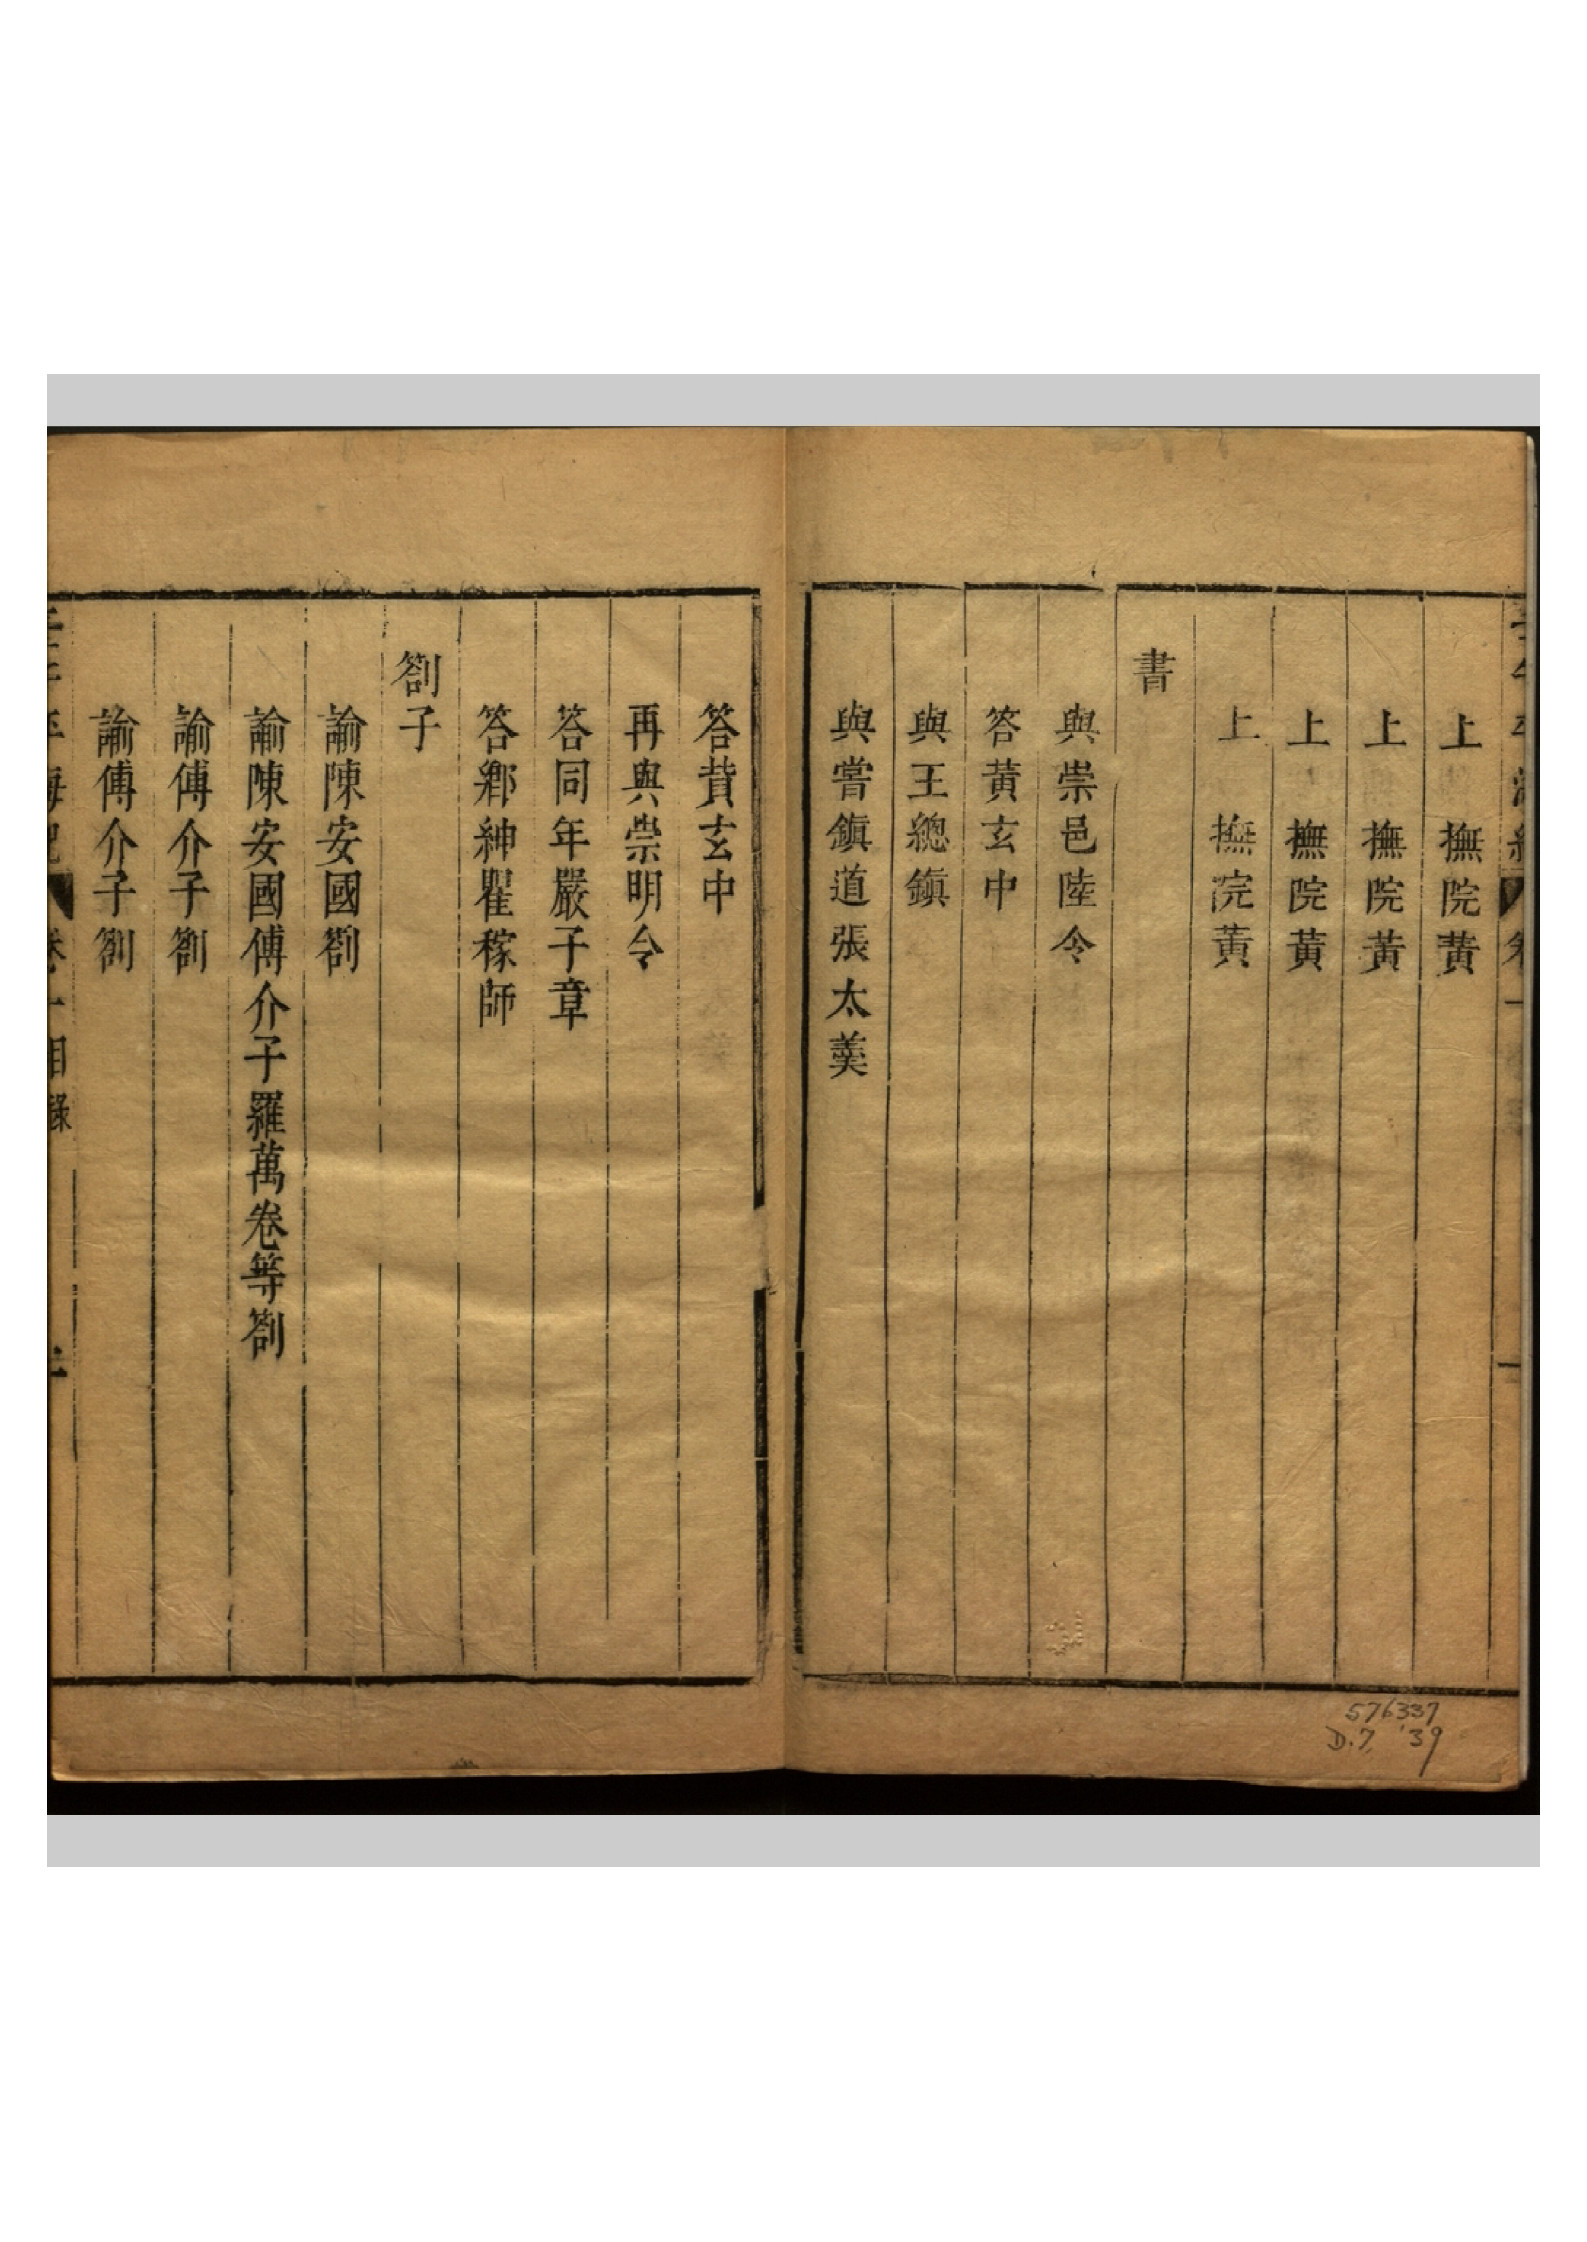 上　撫院黃
上　撫院黃
上　撫院黃
上　撫院黃
書
與崇邑陸令
答黃玄中
與王總鎮
與嘗鎮道張太羹
答黃玄中
再與崇明令
答同年嚴子章
答鄉紳瞿稼師
劄子
諭陳安國劄
諭陳安國傅介子羅萬卷等劄
諭傅介子劄
諭傅介子劄
卷一目錄
576337
D.7 '39